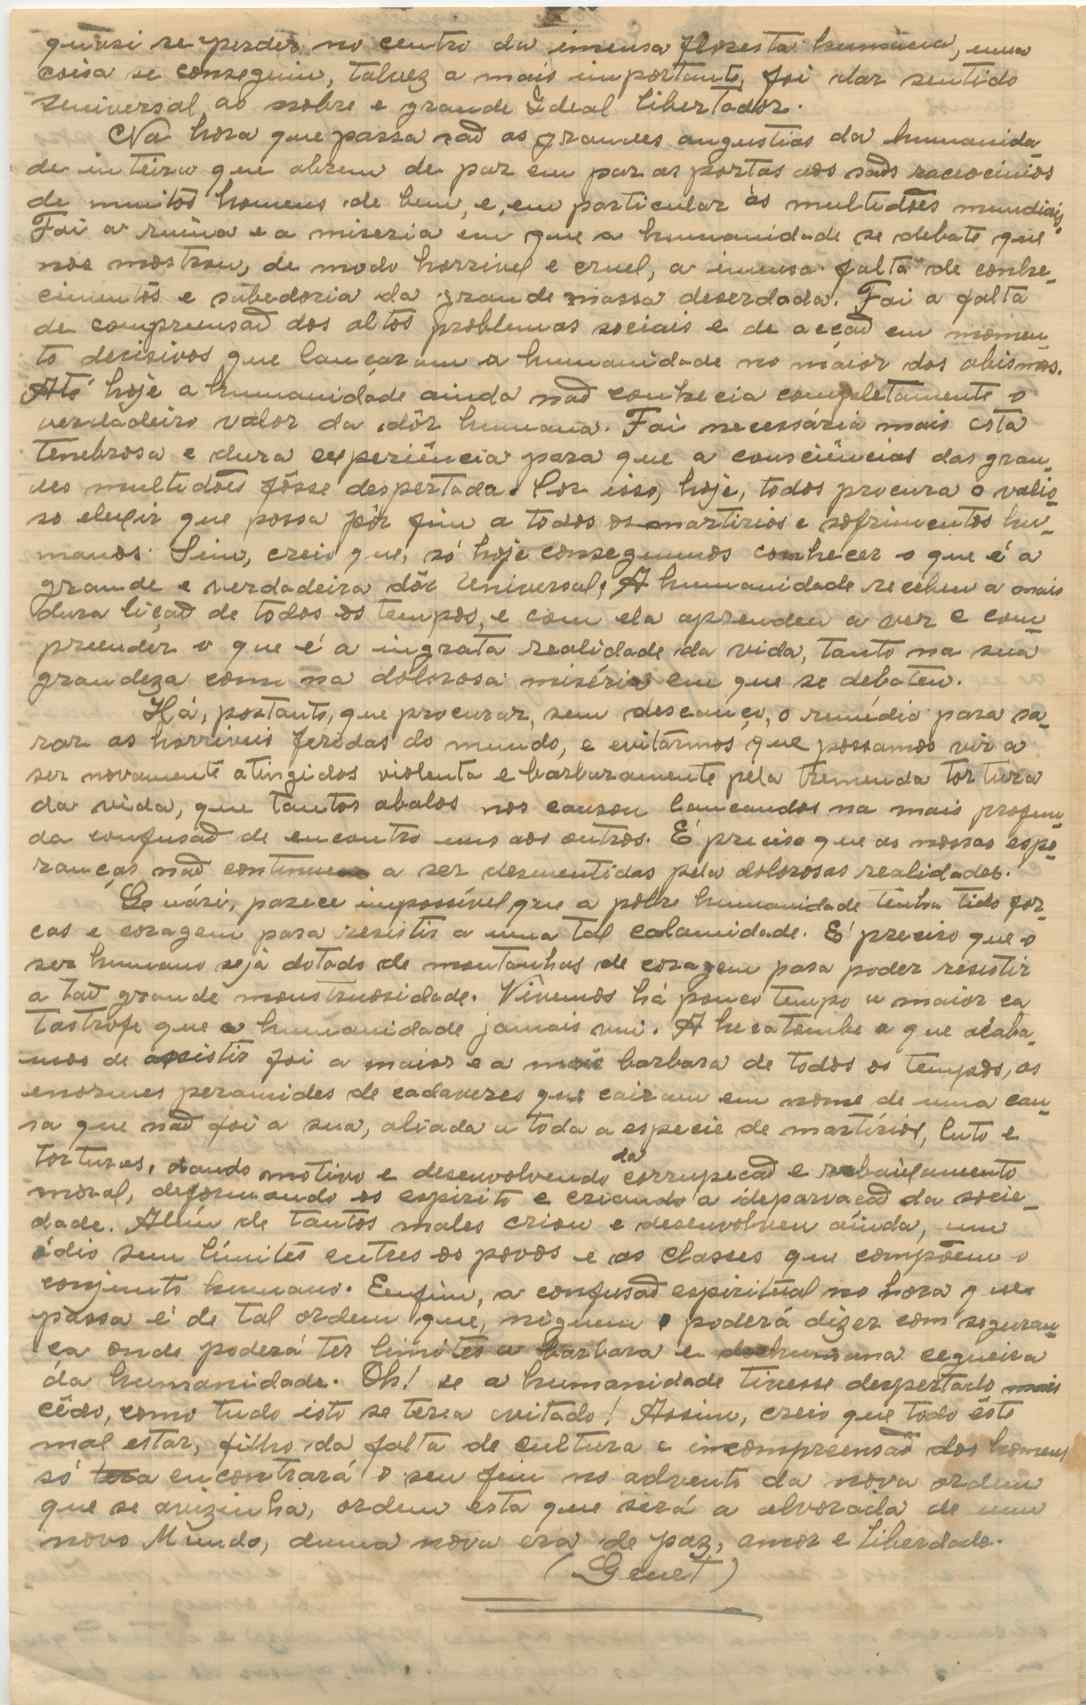 quási se perder no centro da imensa floresta humana, uma
coisa se conseguiu, talvez a mais importante, foi dar sentido
Universal ao nobre e grande Ideal libertador.
Na hora que passa são as grandes angustias da humanida-
de inteira que abrem de par em par as portas aos sãos raciocinios
de muitos homens de bem, e, em particular às multidões mundiais.
Foi a ruina e a miseria em que a humanidade se debate que
nos mostrou, de modo horrivel e cruel, a imensa falta de conhe-
cimentos e sabedoria da grande massa deserdada. Foi a falta
de compreensão dos altos problemas sociais e de acção em momen-
to decisivos que lançaram a humanidade no maior dos abismos.
Até hoje a humanidade ainda não conhecia completamente o
verdadeiro valor da dôr humana. Foi necessária mais esta
tenebrosa e dura experiência para que a consciências das gran-
des multidões fôsse despertada. Por isso, hoje, todos procura o valio-
so elexir que possa pôr fim a todos os martirios e sofrimentos hu-
manos. Sim, creio que, só hoje conseguimos conhecer o que é a
grande e verdadeira dôr Universal. A humanidade recebeu a mais
dura lição de todos os tempos, e com ela aprendeu a ver e com-
preender o que é a ingrata realidade da vida, tanto na sua
grandeza como na dolorosa miséria em que se debateu.
Há, portanto, que procurar, sem descanço, o remédio para sa-
rar as horriveis feridas do mundo, e evitármos que possamos vir a
ser novamente atingidos violenta e barbaramente pela tremenda tortura
da vida, que tantos abalos nos causou lancandos na mais profun-
da confusão de encontro uns aos outros. É preciso que as nossas espe-
ranças não continuem a ser desmentidas pela dolorosas realidades.
Quási, parece impossível que a pobre humanidade tenha tido for-
ças e coragem para resistir a uma tal calamidade. É preciso que o
ser humano seja dotado de montanhas de coragem para poder resistir
a tão grande monstruosidade. Vivemos há pouco tempo a maior ca
tastrofe que a humanidade jamais viu. A hecatombe a que acaba-
mos de assistir foi a maior e a mais barbara de todos os tempos, as
enormes peramides de cadaveres que cairam em nome de uma cau-
sa que não foi a sua, aliada a toda a especie de martírios, luto e
torturas, dando motivo e desenvolvendo da corrupecão e rebaixamento
moral, deformando os espirito e criando a deparvação da socie-
dade. Além de tantos males criou e desenvolveu aínda, um
ódio sem límites entres os povos e as classes que compõem o
conjunto humano. Enfim, a confusão espiritual na hora que
passa é de tal ordem que, niguem poderá dizer com seguran-
ça onde poderá ter limites a barbara e deshumana cegueira
da humanidade. Oh! se a humanidade tivesse despertado mais
cêdo, como tudo isto se teria evitado! Assim, creio que todo êste
mal estar, filho da falta de cultura e incompreensão dos homens
só encontrará o seu fim no advento da nova ordem
que se avizinha, ordem esta que será a alvorada de um
novo Mundo, duma nova era de paz, amor e liberdade.
(Genet)